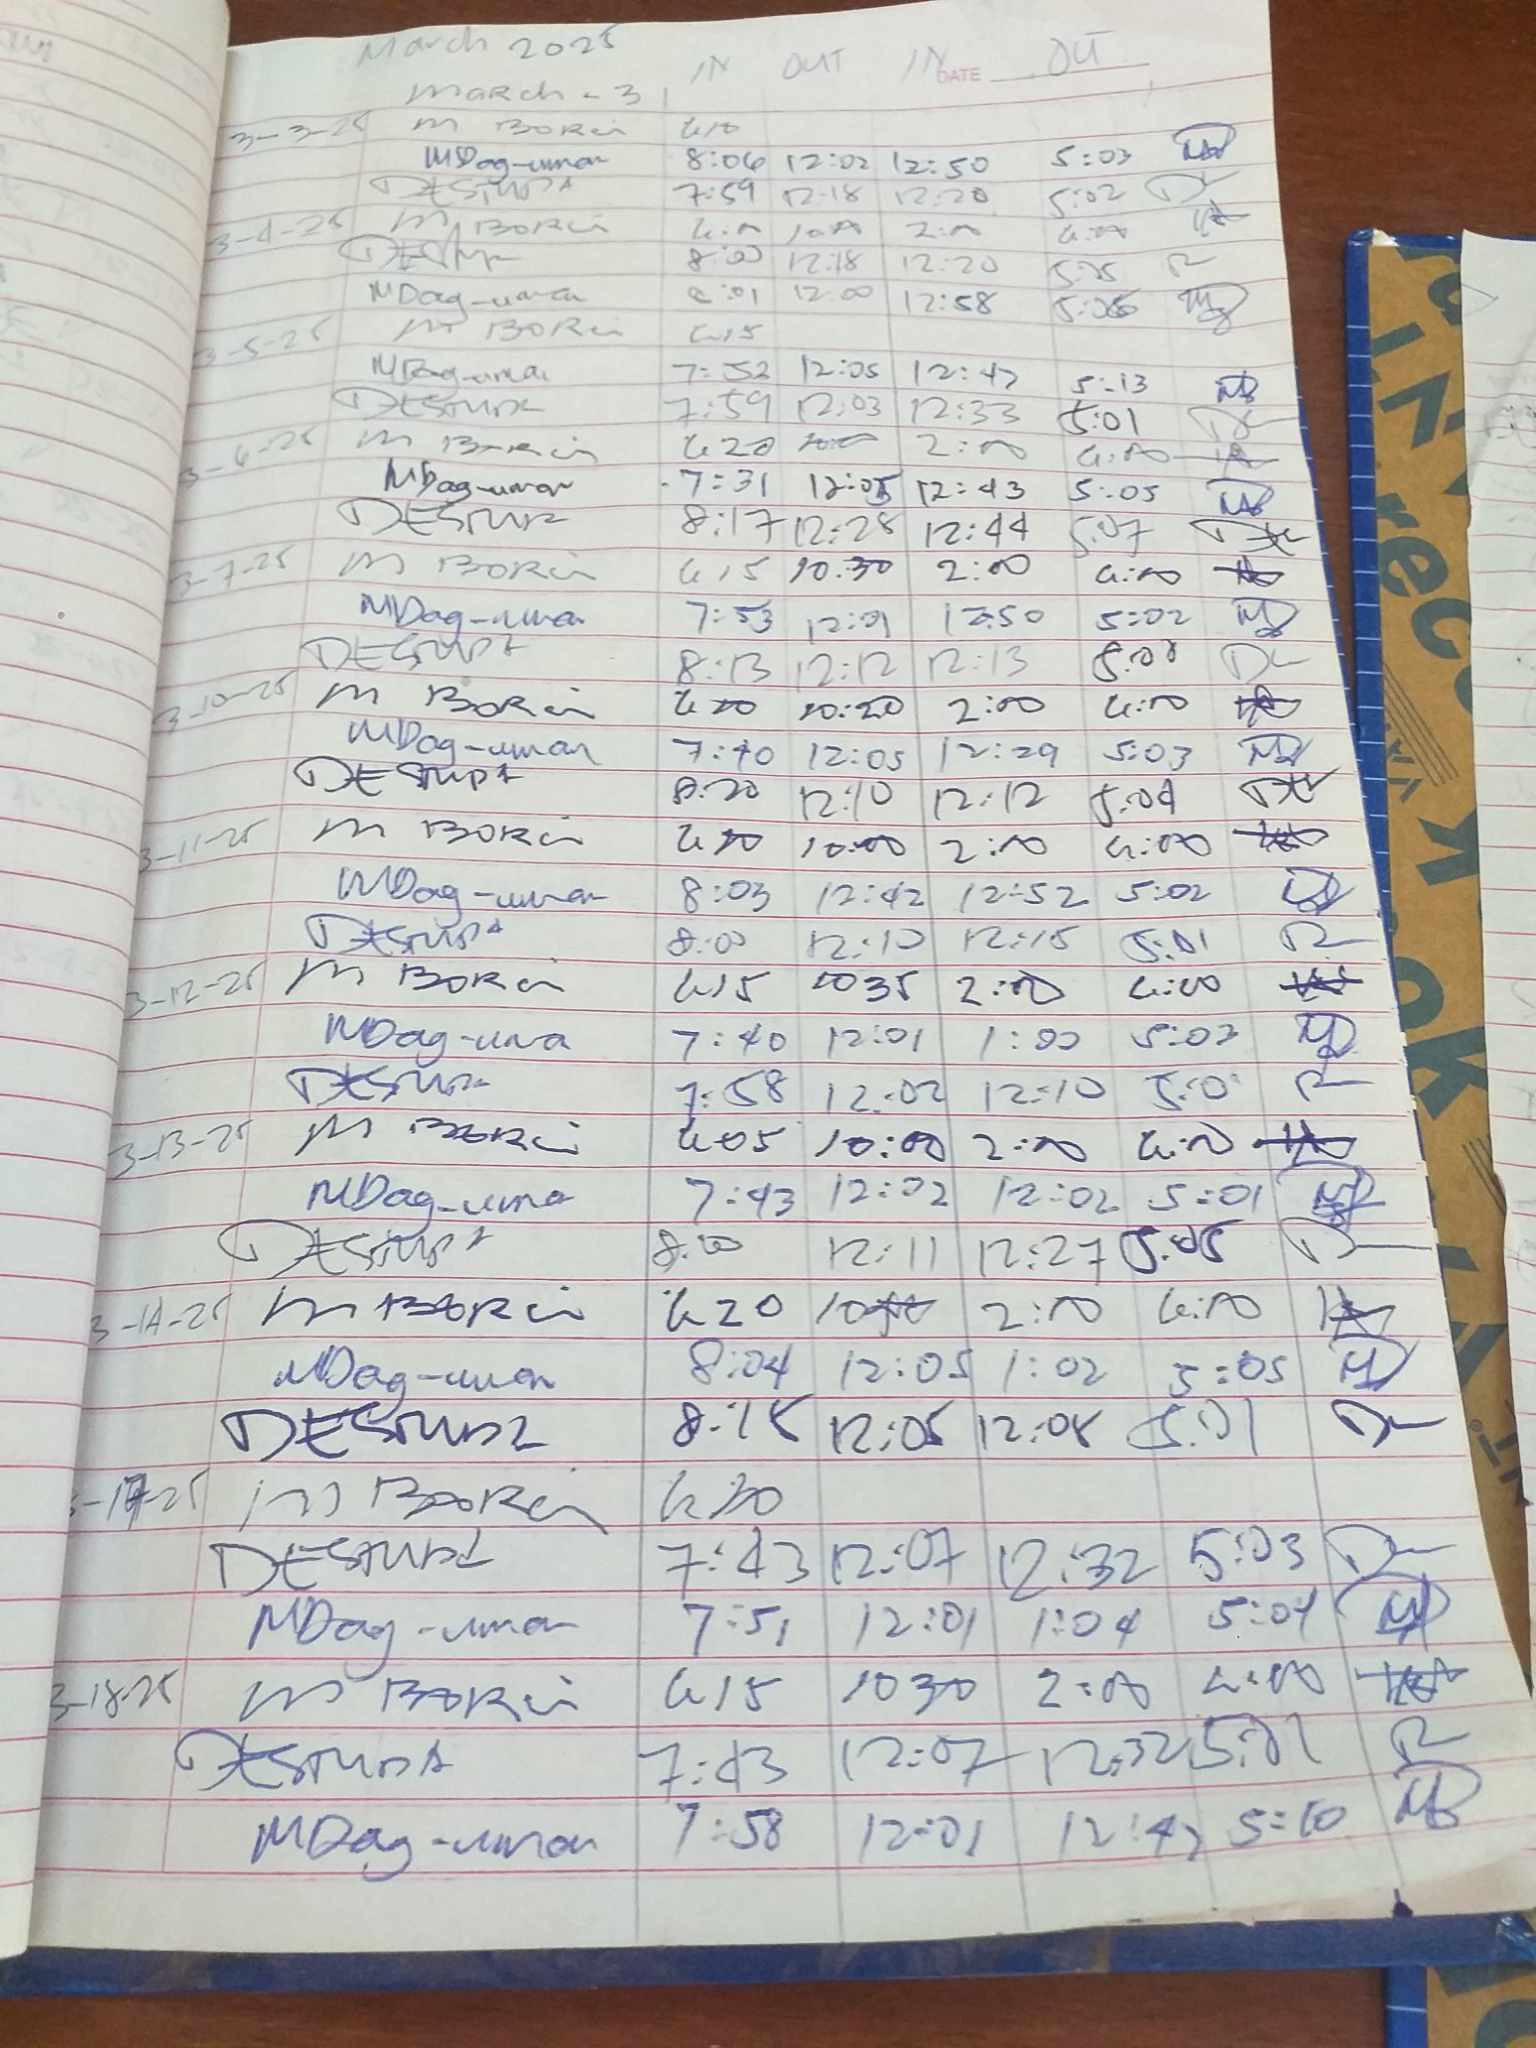 March 2025
IN OUT IN DATE OUT
March - 3
3-3-25 M BORci 6:10
MDag-uman 8:06 12:02 12:50 5:03
DESTUPA 7:59 12:18 12:20 5:02
3-4-25 M BORci 6:00 10:00 2:00 4:00
8:00 12:18 12:20
MDag-uman 8:01 12:00 12:58 5:05
3-5-25 M BORci 6:15
MDag-uman 7:52 12:05 12:47 5:13
DESTUPA 7:59 12:03 12:33 5:01
3-6-25 M BORci 6:20 2:00 4:00
MDag-uman 7:31 12:05 12:43 5:05
DESTUPA 8:17 12:28 12:44 5:07
3-7-25 M BORci 6:15 10:30 2:00 4:00
MDag-uman 7:53 12:01 12:50 5:02
DESTUPA 8:13 12:12 12:13
3-10-25 M BORci 10:20 2:00 4:00
MDag-uman 7:40 12:05 12:29 5:03
DESTUPA 8:20 12:10 12:12 5:04
3-11-25 M BORci 10:00 2:00 4:00
MDag-uman 8:03 12:42 12:52 5:02
DESTUPA 8:00 12:10 12:15 5:01
3-12-25 M BORci 6:15 1035 2:00 4:00
MDag-uma 7:40 12:01 1:00 5:03
DESTUPA 7:58 12:02 12:10
3-13-25 M BORci 6:05 10:00 2:00 4:00
MDag-uma 7:43 12:02 12:02 5:01
DESTUPA 8:00 12:11 12:27 5:05
3-14-25 M BORci 6:20 2:00 4:00
MDag-uman 8:04 12:05 1:02 5:05
DESTUPA 8:15 12:05 12:08 5:01
3-17-25 M BORci
DESTUPA 7:43 12:07 12:32 5:03
MDag-uman 7:51 12:01 1:04 5:04
3-18-25 M BORci 6:15 1030 2:00 4:00
DESTUPA 7:43 12:07 12:32 5:01
MDag-uman 7:58 12:01 12:47 5:10